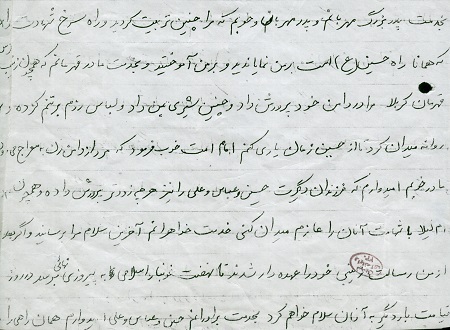 بخدمت پدر بزرگ مهربانم و پدر مهربان و خوبم که مرا چنین تربیت کردید و راه سرخ شهادت را
که همانا راه حسین (ع) است بمن نمایاندید و بمن آموختید و بخدمت مادر قهرمانم که همچون زینب
قهرمان کربلا مرا در دامن خود پرورش داد و چنین شیری بمن داد و لباس رزم برتنم کرده و
روانه میدان کرد تا از حسین زمان یاری کنم امام امت خوب فرمود که مرد از دامن زن به معراج می
مادر خوبم امیدوارم که فرزندان دیگرت حسن و عباس و علی را نیز هرچه زودتر پرورش داده و همچون
ام لیلا با شهامت آنان را عازم میدان کنی خدمت خواهرانم آخرین سلام مرا برسانید و اگر بعد
از من رسالت زینبی خود را عهده دار شدند تا نهضت خونبار اسلامی ما به پیروزی نهائی برسد در روز
قیامت بار دیگر به آنان سلام خواهم کرد بخدمت برادرانم حسن و عباس و علی امیدوارم همان راهی را